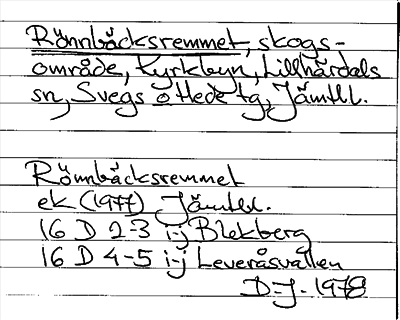 Rönnbäcksremmet, skogs-
område, Kyrkbyn, Lillhärdals
sn, Svegs o Hede tg, Jämtl l.
Rönnbäcksremmet
ek (1977) Jämtl l.
16 D 2-3 i-j Blekberg
16 D 4-5 i-j Leveråsvallen
D-J. 1978